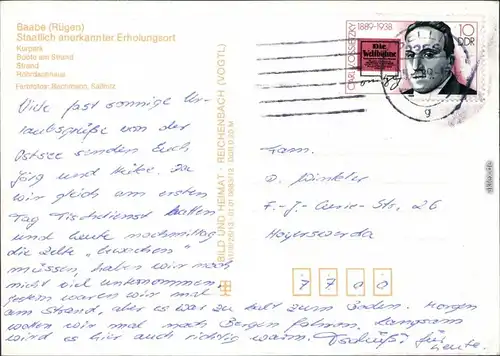 Baabe (Rügen)
Staatlich anerkannter Erholungsort
Kurpark
Boote am Strand
Strand
Rohrdachhaus
Farbfotos: Bachmann, Saßnitz
Viele fast sonnige Ur-
laubsgrüße von der
Ostsee senden Euch
Jörg und Heike. Da
wir gleich am ersten
Tag Tischdienst hatten
und heute nachmittag
die Zelte "bewachen"
müssen, haben wir noch
nicht viel unternommen.
Gestern waren wir mal
am Strand, aber es war zu kalt zum Baden. Morgen
wollen wir mal nach Bergen fahren. Langsam
wird es hier auch richtig warm. Tschüß! für
heute.
BILD UND HEIMAT · REICHENBACH (VOGTL)
CARL V. OSSIETZKY 1889-1938
Die
Weltbühne
10
DDR
g
Fam.
D. Winkler
F.-J.-Curie-Str. 26
Hoyerswerda
7 7 0 0